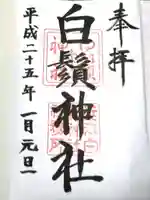 奉拝
白鬚神社
平成二十五年一月元日